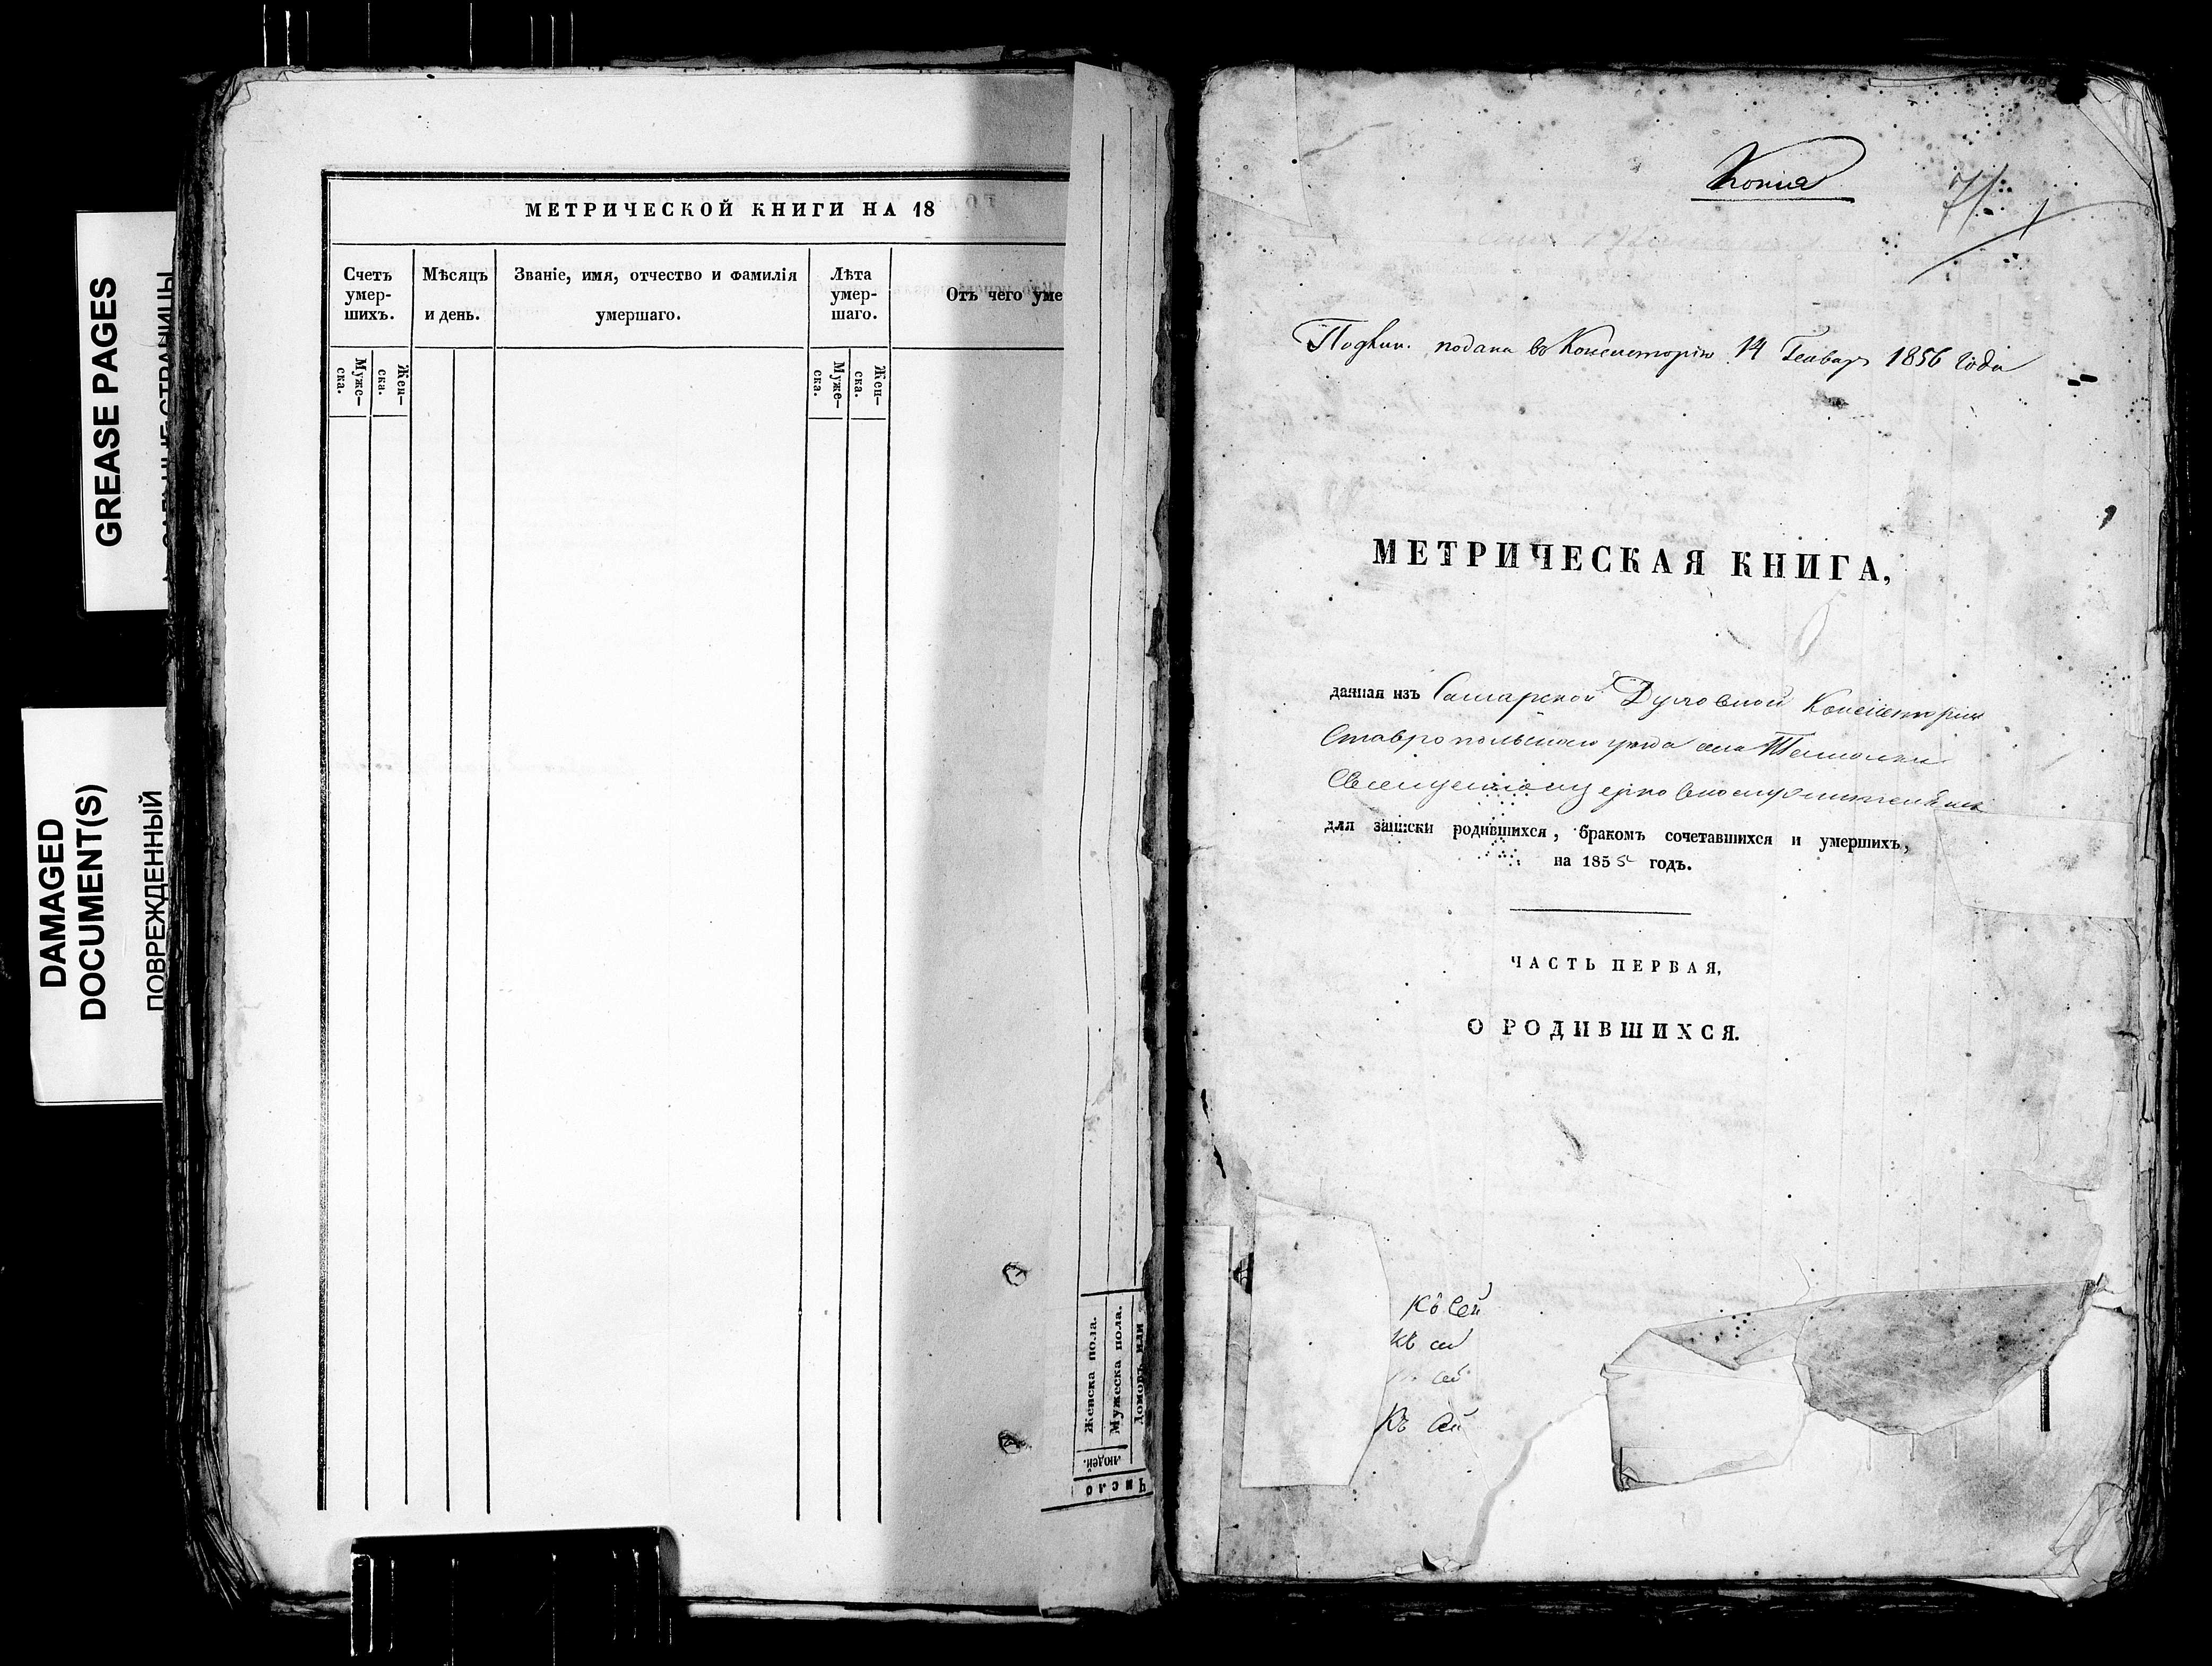 GREASE PAGES
DAMAGED
DOCUMENT(S)
ПОВРЕЖДЕННЫЙ
МЕТРИЧЕСКОЙ КНИГИ НА 18
Счетъ умер-шихъ.
Мѣсяцъ и день.
Званіе, имя, отчество и фамилія умершаго.
Лѣта умер-шаго.
Отъ чего уме
Муже-ска.
Жен-ска.
Муже-ска.
Жен-ска.
Женска пола.
Мужеска пола.
Домовъ или
людей.
Число
Копия
Подлин. подана въ Консисторію 14 Генваря 1856 года
МЕТРИЧЕСКАЯ КНИГА,
данная изъ Самарской Духовной Консисторіи
Ставропольскаго уѣзда села
Священноцерковнослужителямъ
для записки родившихся, бракомъ сочетавшихся и умершихъ,
на 1855 годъ.
ЧАСТЬ ПЕРВАЯ,
О РОДИВШИХСЯ.
Къ сей
Къ сей
сей
Къ сей